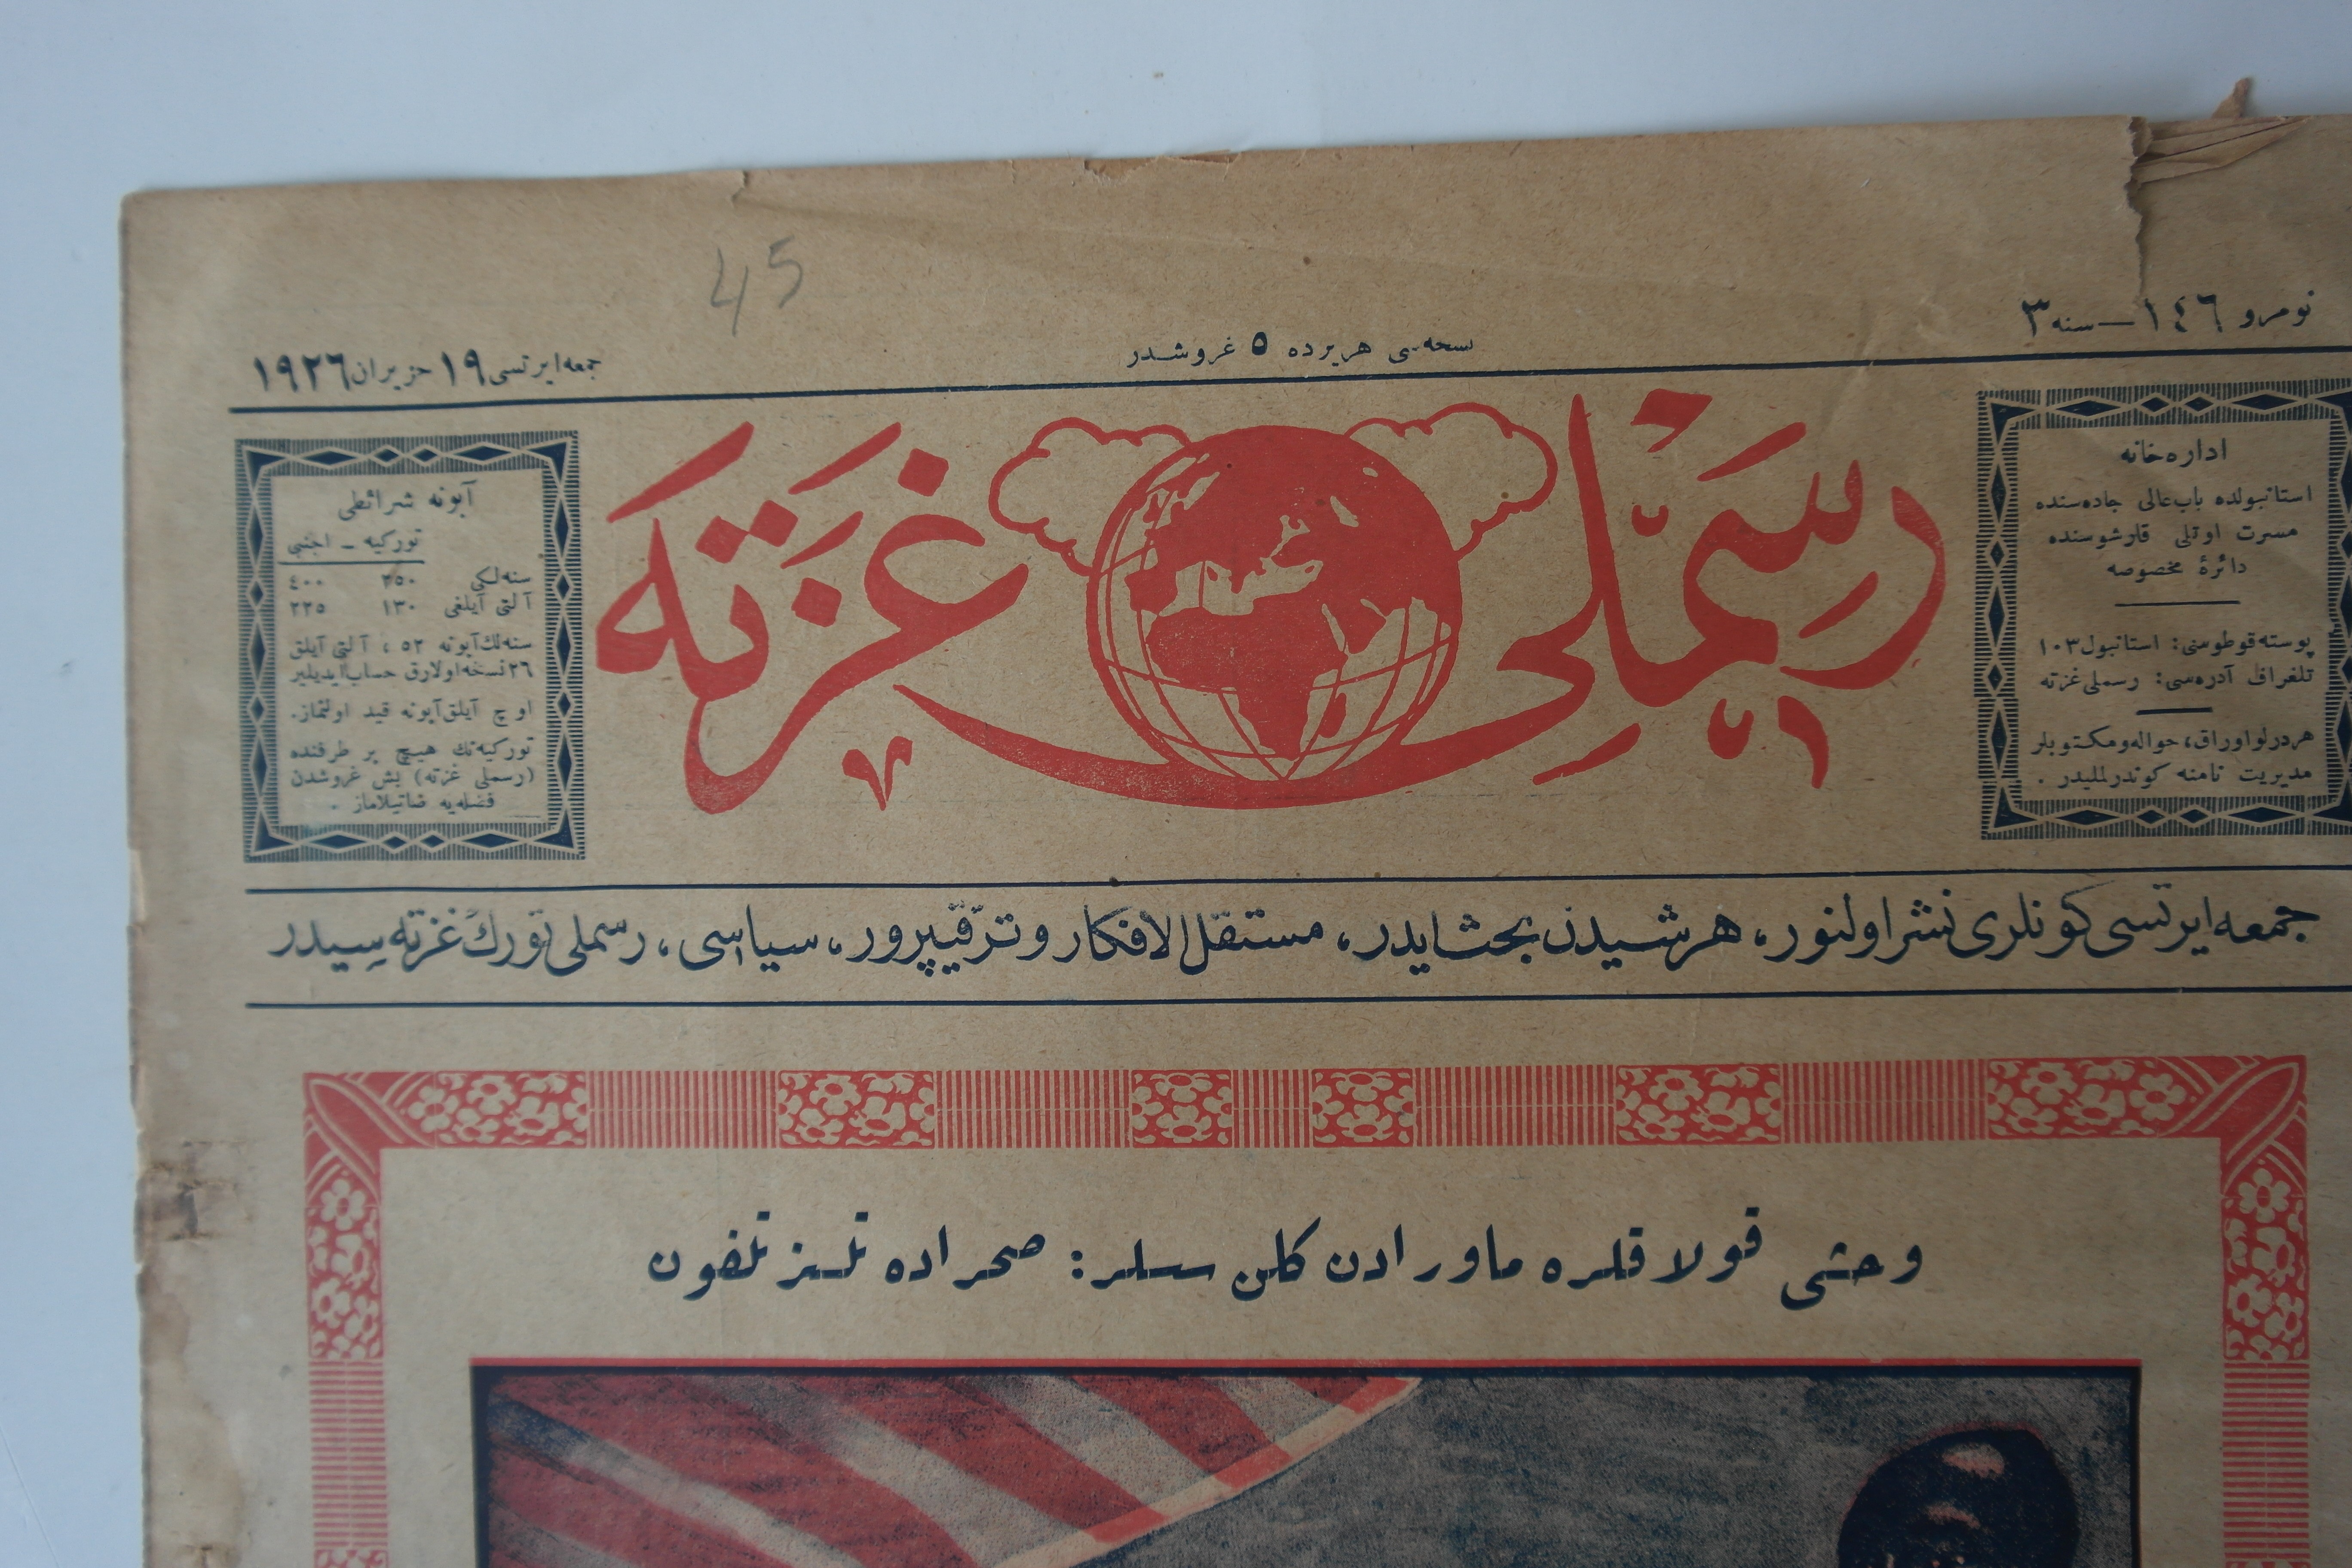 45
نومرو ١٤٦ — سنه ٣
نسخه‌سی هر یرده ٥ غروشدر
جمعه ایرتسی ١٩ حزیران ١٩٢٦
رسملی غزته
اداره‌خانه
استانبولده باب‌عالی جاده‌سنده
مسرت اوتلی قارشوسنده
دائرهٔ مخصوصه
پوسته قوطوسی: استانبول ١٠٣
تلغراف آدره‌سی: رسملی غزته
هر درلو اوراق، حواله و مکتوبلر
مدیریت نامنه کوندرلملیدر .
آبونه شرائطی
تورکیه ـ اجنبی
سنه‌لکی ٢٥٠ ٤٠٠
آلتی آیلغی ١٣٠ ٢٢٥
سنه‌لك آبونه ٥٢ ، آلتی آیلق
٢٦ نسخه اولارق حساب ایدیلیر
اوچ آیلق آبونه قید اولنماز.
تورکیه‌نك هیچ بر طرفنده
(رسملی غزته) بش غروشدن
فضله‌یه صاتیلاماز .
جمعه ایرتسی کونلری نشر اولنور، هر شیدن بحث ایدر، مستقل الافکار و ترقیپرور، سیاسی، رسملی تورك غزته سیدر
وحشی قولاقلره ماورادن کلن سسلر: صحراده تلسز تلفون